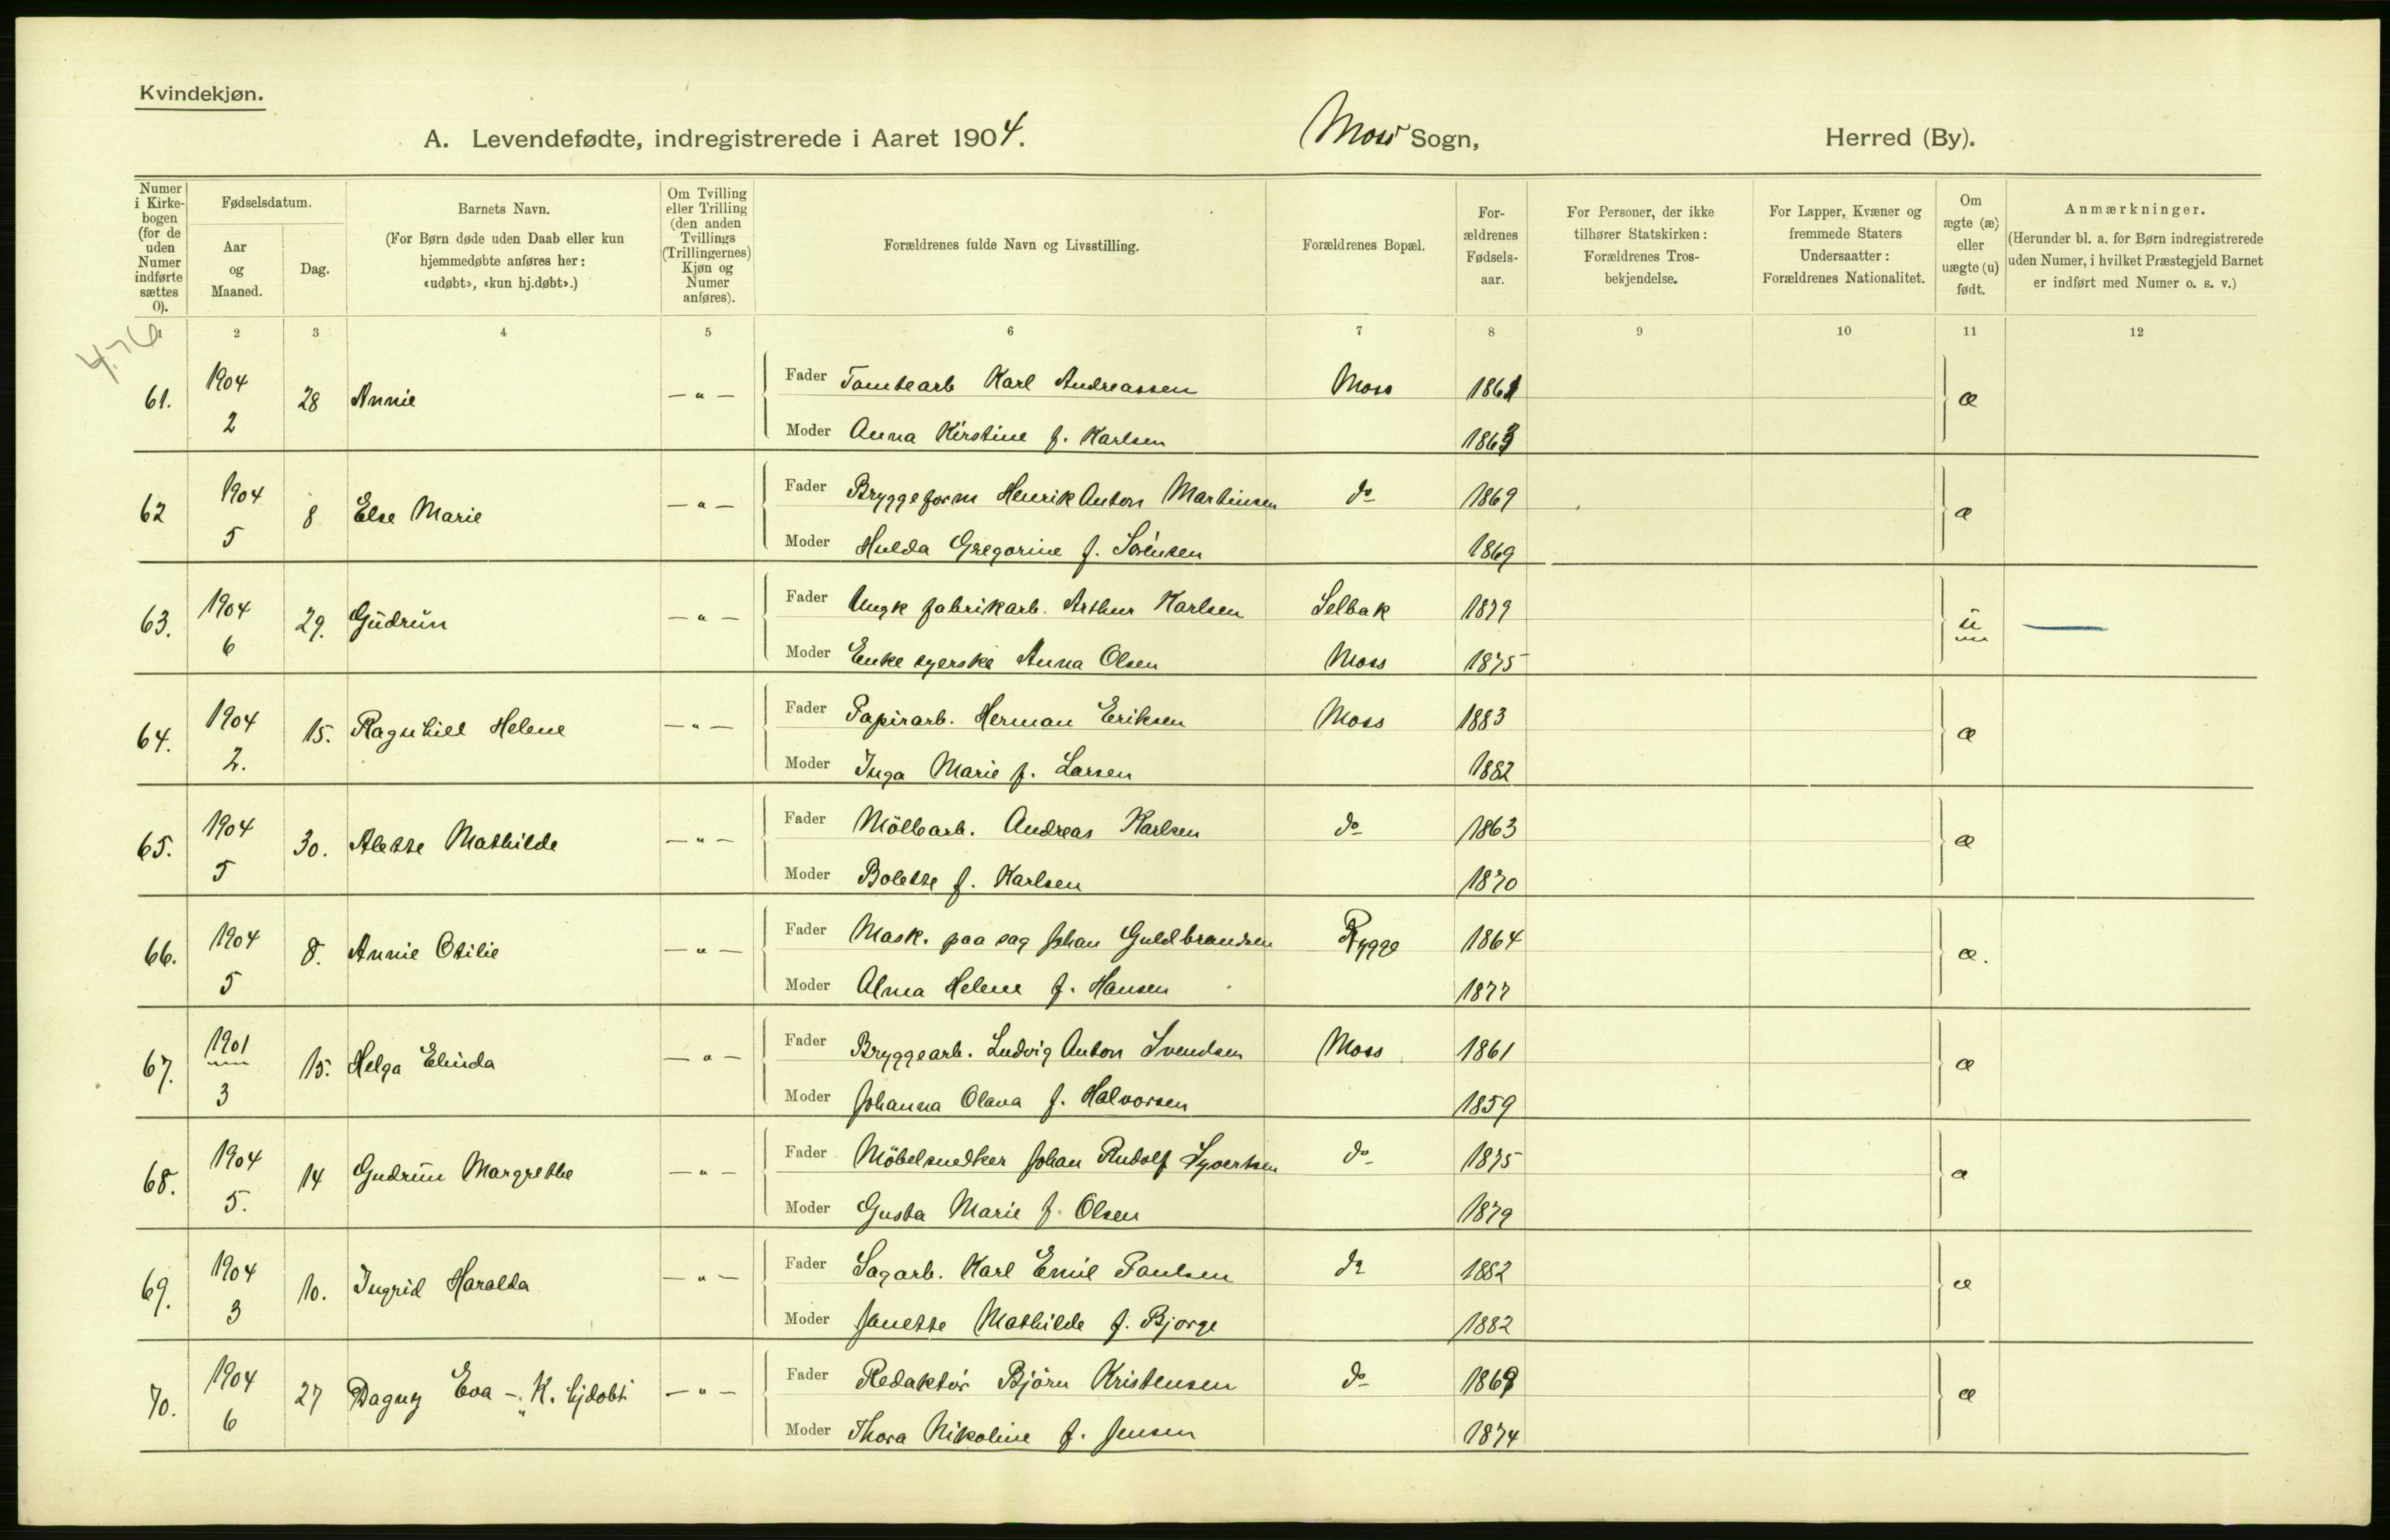 Kvindekjøn.
A. Levendefødte, indregistrerede i Aaret 1904. Moss Sogn, Herred (By).
Numer i Kirkebogen (for de uden Numer indførte sættes 0).
Fødselsdatum.
Aar og Maaned.
Dag.
Barnets Navn.
(For Børn døde uden Daab eller kun hjemmedøbte anføres her: «udøbt», «kun hj.døbt».)
Om Tvilling eller Trilling (den anden Tvillings (Trillingernes) Kjøn og Numer anføres).
Forældrenes fulde Navn og Livsstilling.
Forældrenes Bopæl.
Forældrenes Fødselsaar.
For Personer, der ikke tilhører Statskirken: Forældrenes Trosbekjendelse.
For Lapper, Kvæner og fremmede Staters Undersaatter: Forældrenes Nationalitet.
Om ægte (æ) eller uægte (u) født.
Anmærkninger.
(Herunder bl. a. for Børn indregistrerede uden Numer, i hvilket Præstegjeld Barnet er indført med Numer o. s. v.)
1 2 3 4 5 6 7 8 9 10 11 12
61. 1904 2 28 Annie — " — Fader Tomtearb Karl Andreassen Moss 1861 æ
Moder Anna Kirstine f. Karlsen 1863
62 1904 5 8 Else Marie — " — Fader Bryggeform Henrik Anton Martinsen do 1869 æ
Moder Hulda Gregorine f. Sørensen 1869
63. 1904 6 29. Gudrun — " — Fader Ungk fabrikarb. Arthur Karlsen Selbak 1879 u
Moder Enke syerske Anna Olsen Moss 1875
64. 1904 2. 15. Ragnhild Helene — " — Fader Papirarb. Herman Eriksen Moss 1883 æ
Moder Inga Marie f. Larsen 1882
65. 1904 5 30. Alette Mathilde — " — Fader Möllearb. Andreas Karlsen do 1863 æ
Moder Bolette f. Karlsen 1870
66. 1904 5 8. Annie Otilie — " — Fader Mask. paa sag Johan Guldbrandsen Rygge 1864 æ.
Moder Alma Helene f. Hansen 1877
67. 1901 3 15. Helga Elinda — " — Fader Bryggearb. Ludvig Anton Svendsen Moss 1861 æ
Moder Johanna Olava f. Halvorsen 1859
68. 1904 5. 14 Gudrun Margrethe — " — Fader Möbelsnedker Johan Rudolf Syvertsen do 1875 æ
Moder Gusta Marie f. Olsen 1879
69. 1904 3 10. Ingrid Haralda — " — Fader Sagarb. Karl Emil Paulsen do 1882 æ
Moder Janette Mathilde f. Bjorge 1882
70. 1904 6 27 Dagny Eva — "K. hjdobt — " — Fader Redaktör Björn Kristensen do 1869 æ
Moder Thora Nikoline f. Jensen 1874